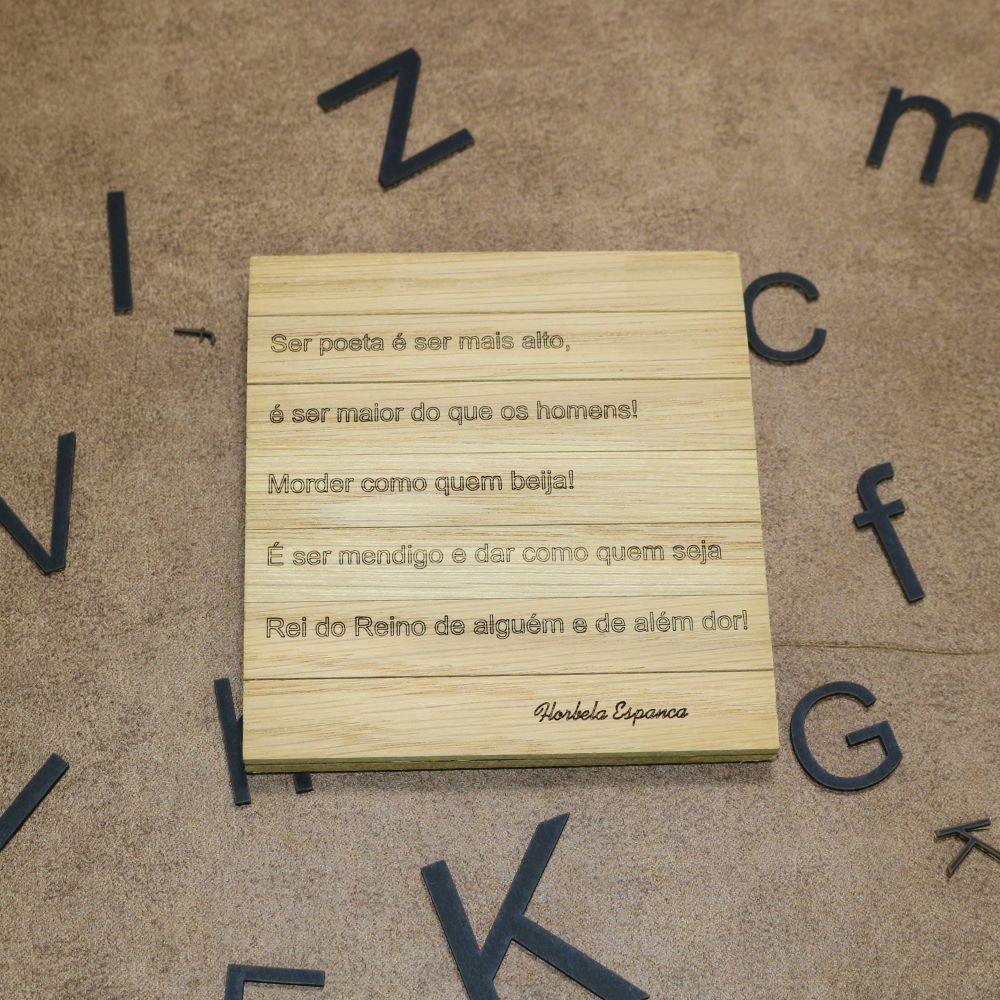 Z
m
l
C
Ser poeta é ser mais alto,
é ser maior do que os homens!
Morder como quem beija!
É ser mendigo e dar como quem seja
Rei do Reino de alguém e de além dor!
Florbela Espanca
V
f
G
K
K